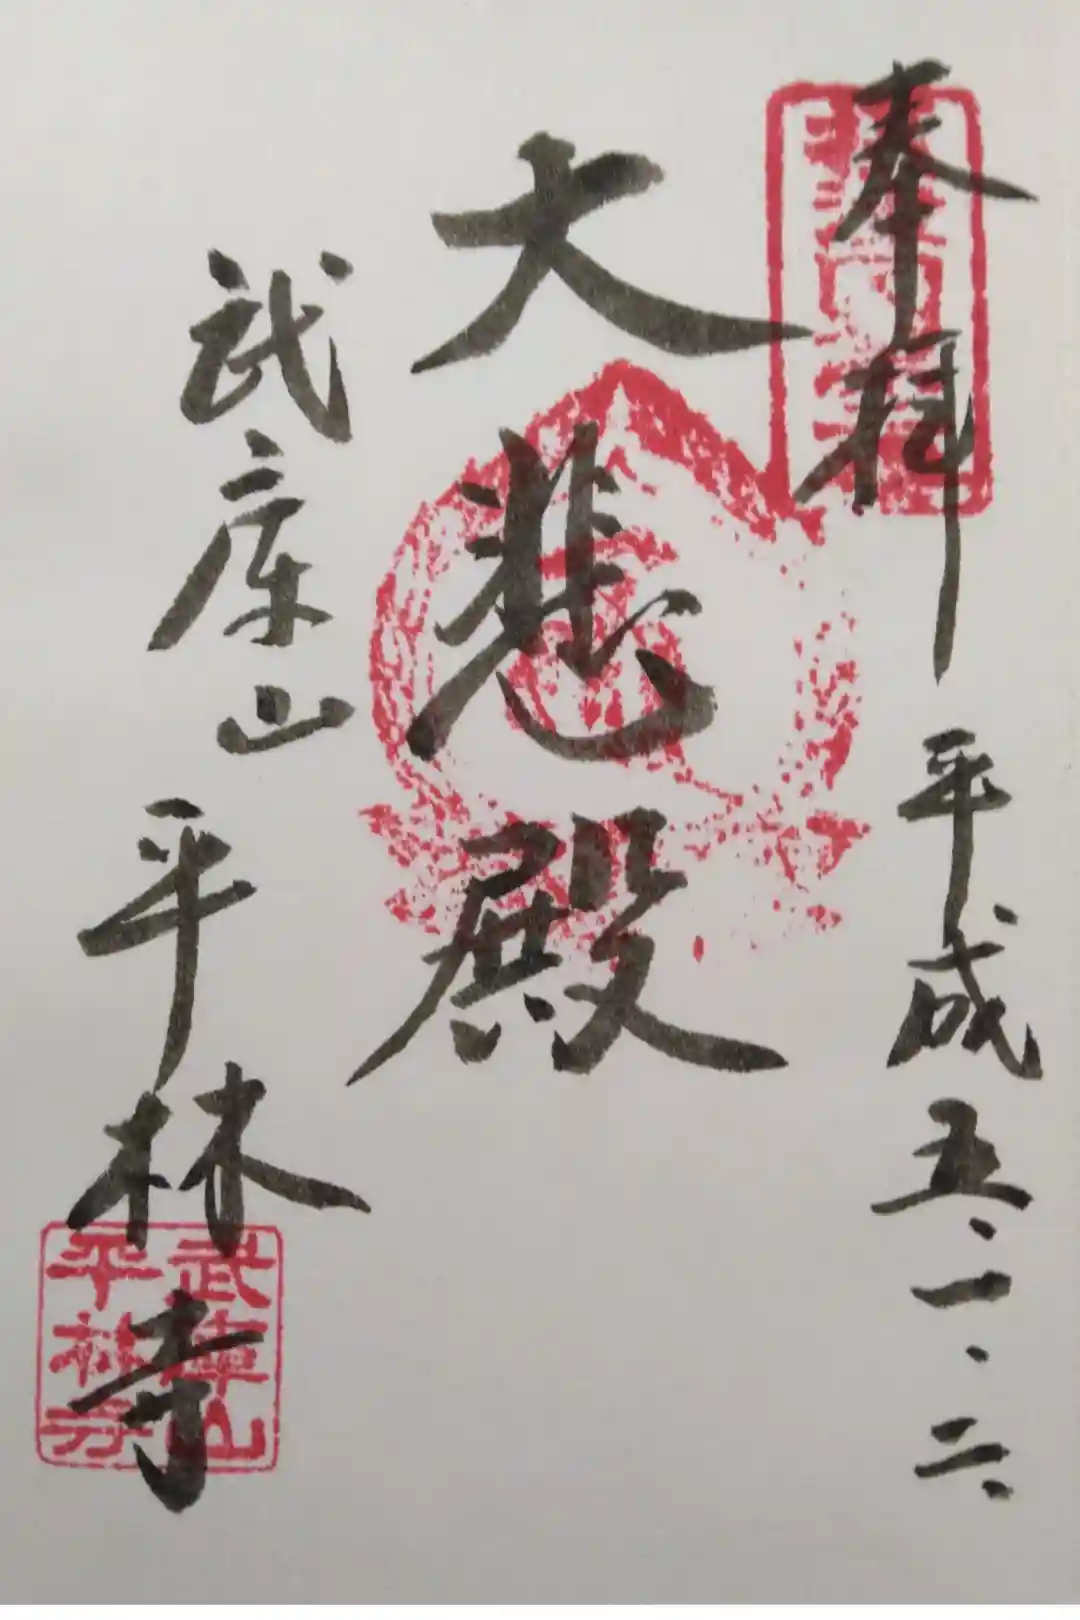 奉拝 平成五、一、六
大悲殿
武庫山
平林寺
武庫山
平林寺